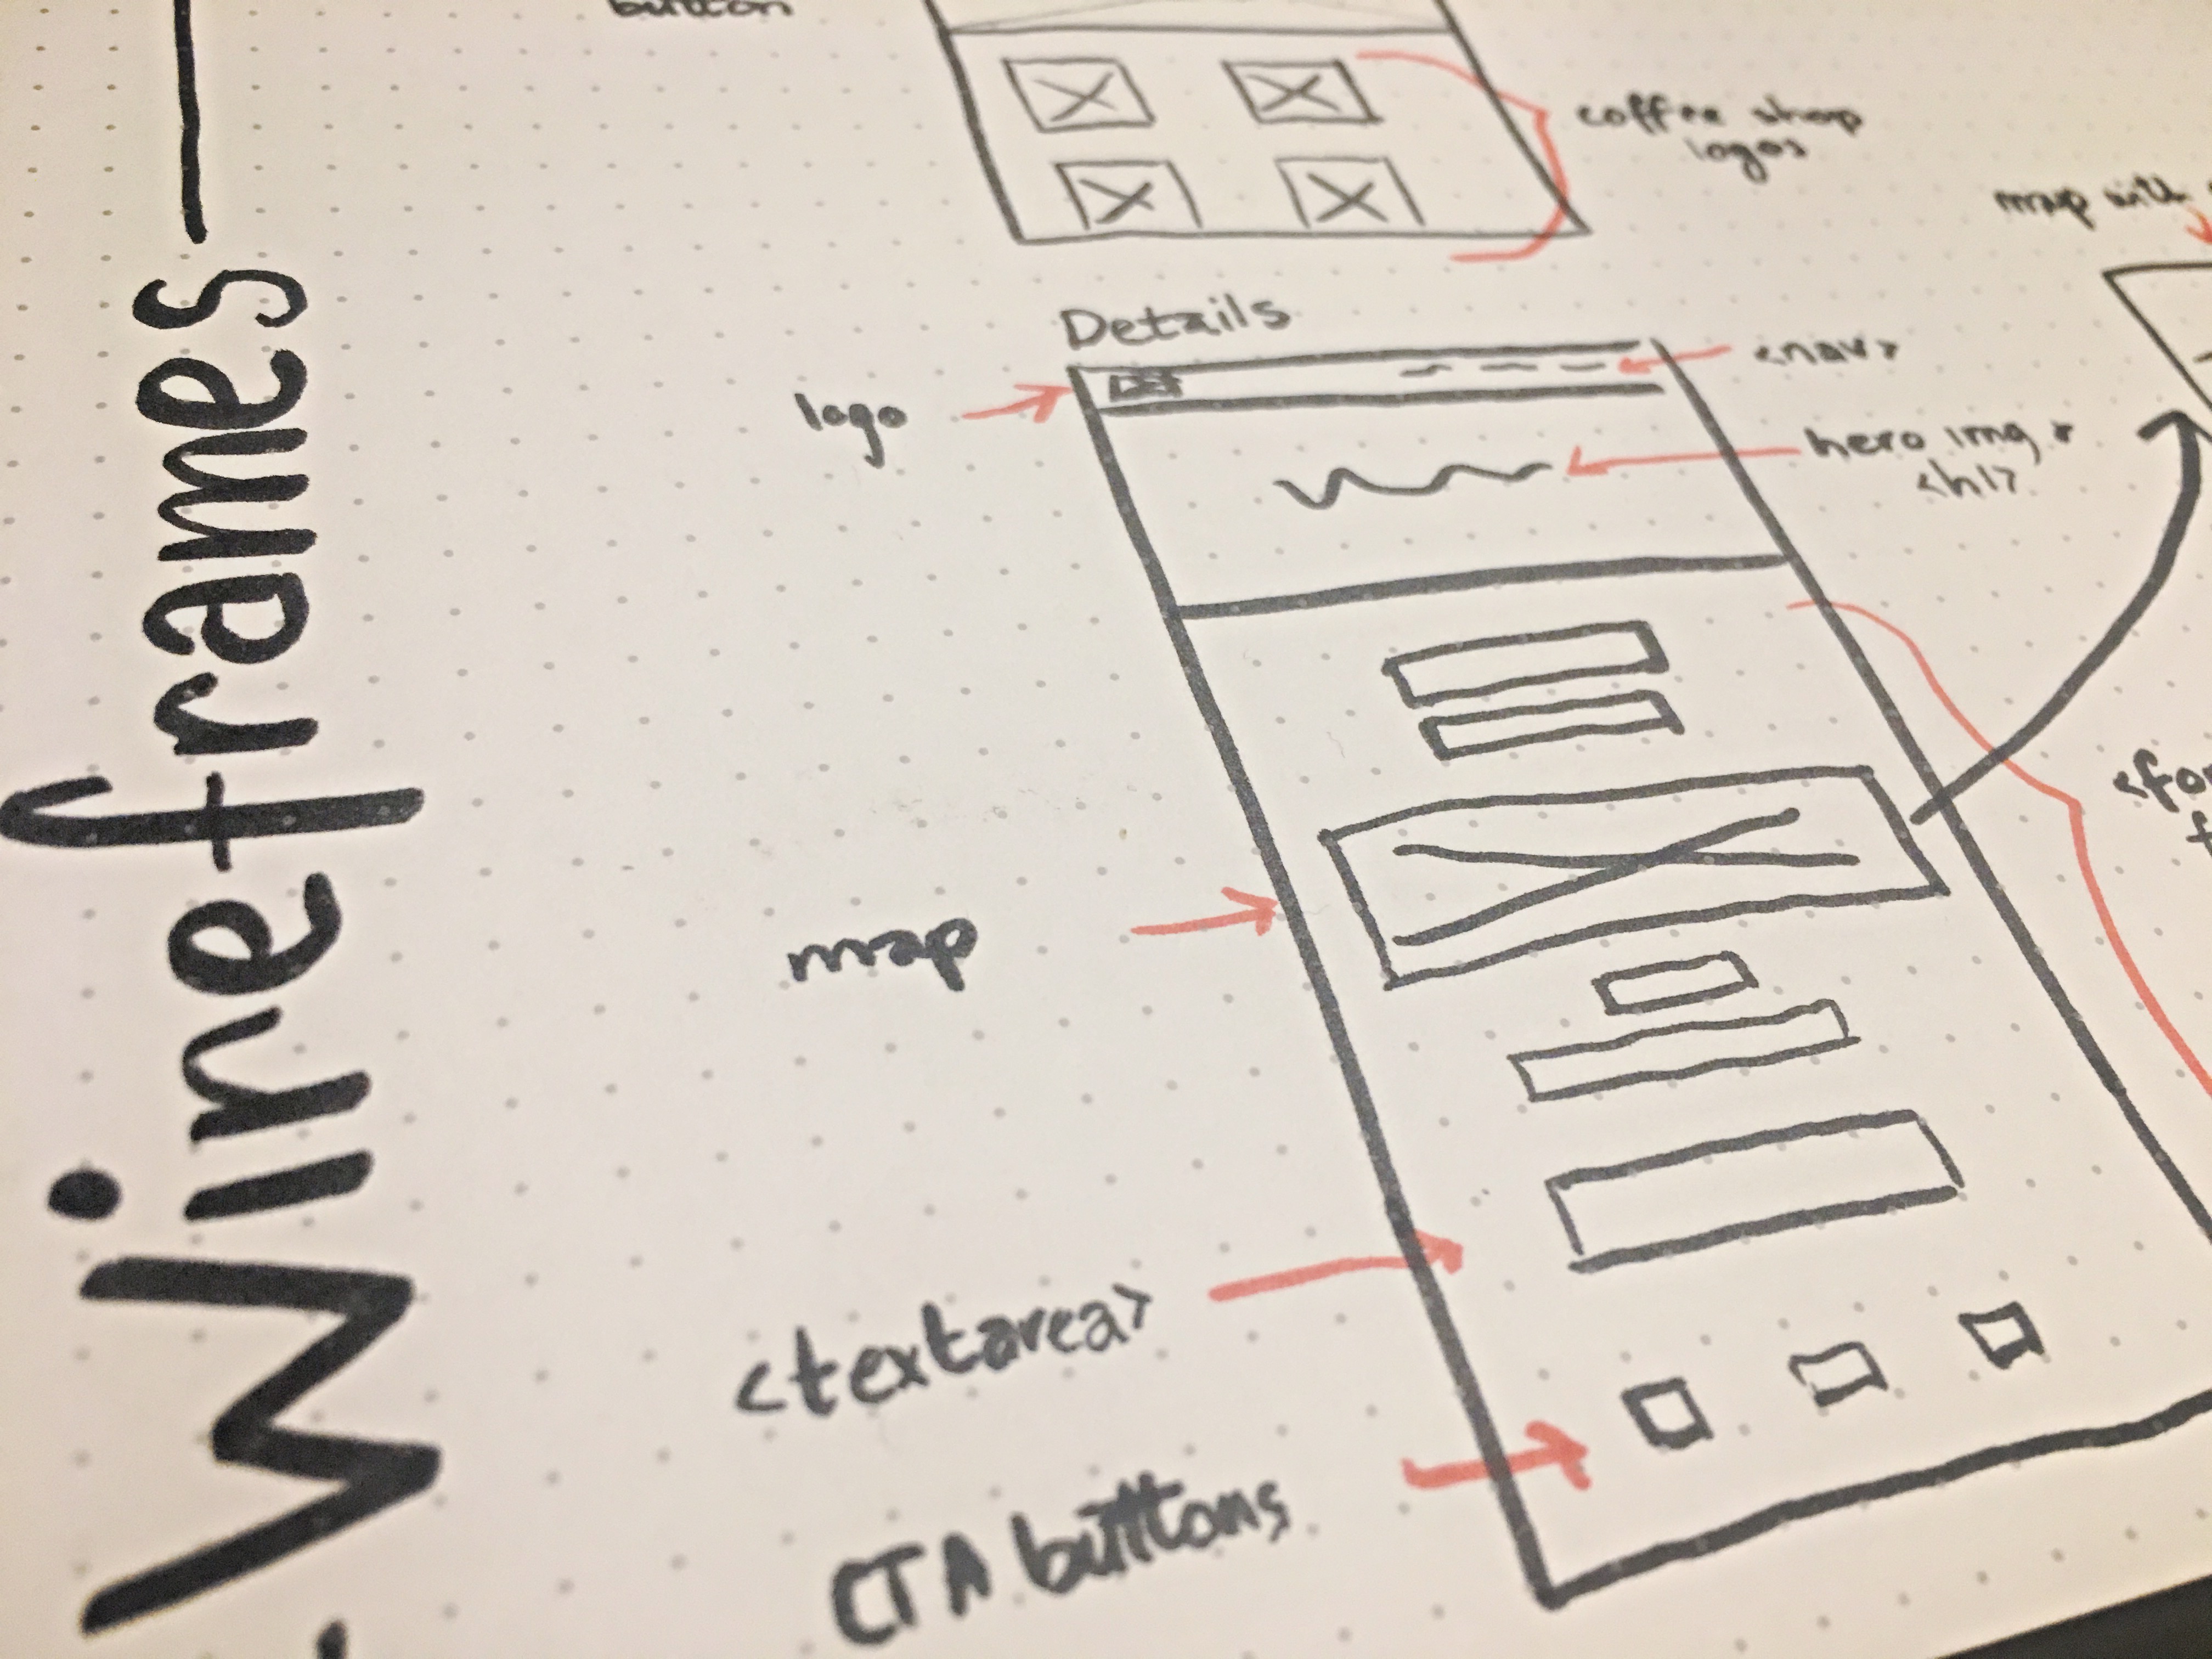 Wireframes
button
coffee shop
logos
map with
Details
logo
<nav>
hero img &
<h1>
map
<textarea>
CTA buttons